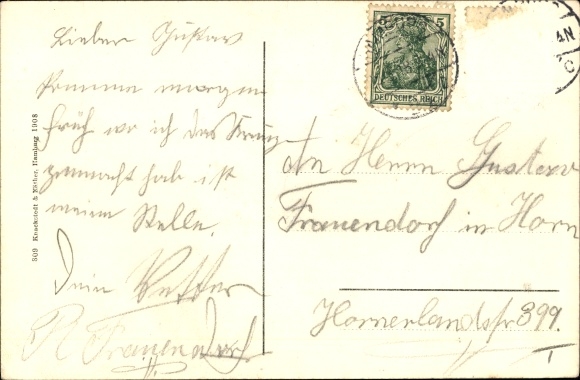 Lieber Gustav
komme morgen
früh wo ich das Kreuz
gemacht hab ist
meine Stelle.
Dein Vetter
R Frauendorf
An Herrn Gustav
Frauendorf in Horn
Hornerlandstr 399.
I
5 5
DEUTSCHES REICH
AN
C
809 Knackstedt & Näther, Hamburg 1908